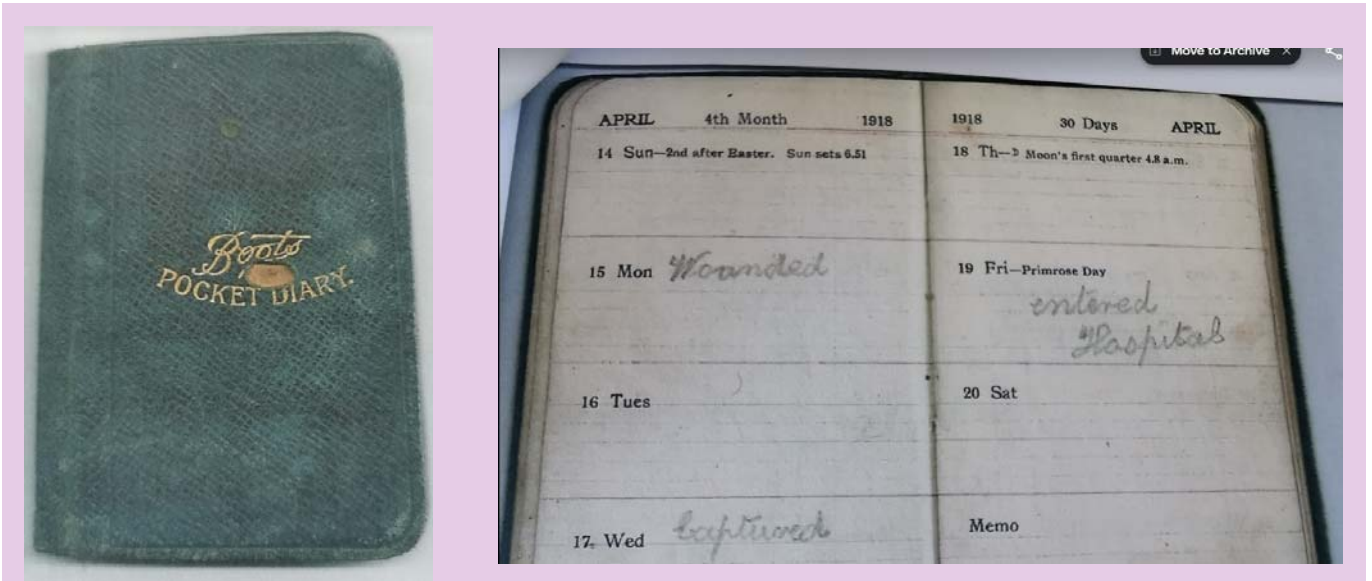 Boots
POCKET DIARY.
Move to Archive
APRIL 4th Month 1918
14 Sun—2nd after Easter. Sun sets 6.51
15 Mon Wounded
16 Tues
17 Wed Captured
1918 30 Days APRIL
18 Th—☽ Moon's first quarter 4.8 a.m.
19 Fri—Primrose Day
entered
Hospital
20 Sat
Memo